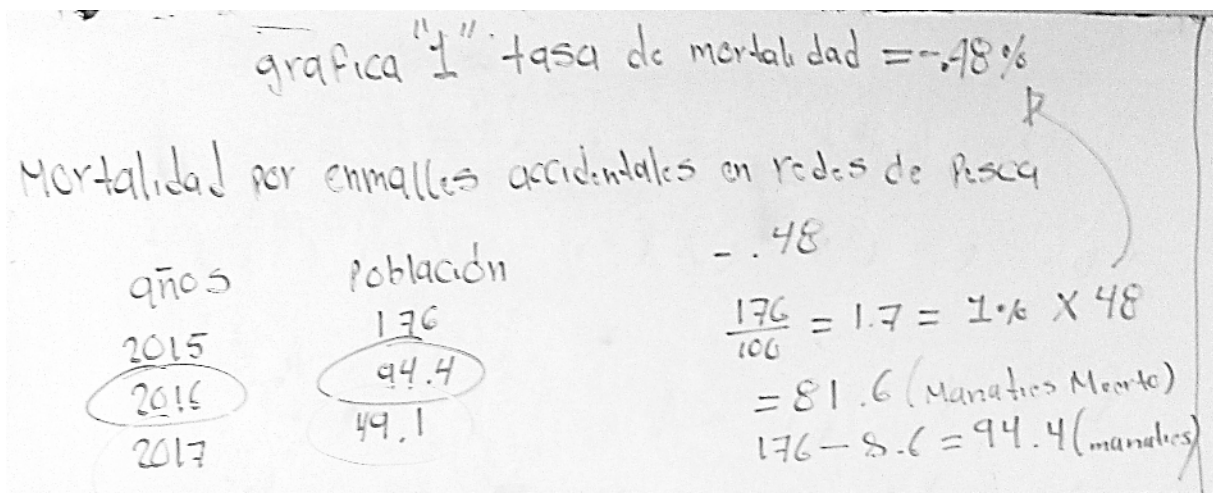 grafica "1" tasa de mortalidad = -.48%
Mortalidad por enmalles accidentales en redes de Pesca
años Población
2015 176
2016 94.4
2017 49.1
- .48
176/100 = 1.7 = 1% X 48
= 81.6 (Manaties Muerto)
176 - 8.6 = 94.4 (manaties)